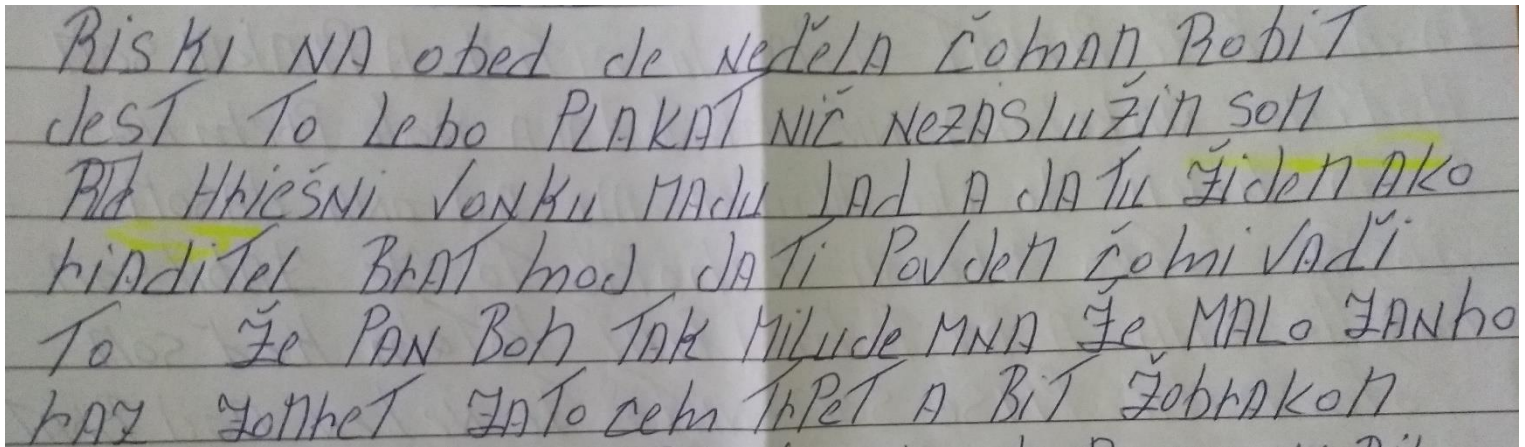 RiSKI NA obed de NeďelA ČoMAM RobiT
JesT To Lebo PLAKAT Nič NeZASLuŽiM SoM
HriešNi VoNKu MAJu LAd A JA Tu Židem AKo
riAdiTel BrAT moJ JA Ti PoVJem čo mi VAďi
To Že PAN Boh TAK MiLuJe MNA Že MALo ZANho
rAZ ZoMreT ZATo cem TrPeT A BiT ŽobrAKoM